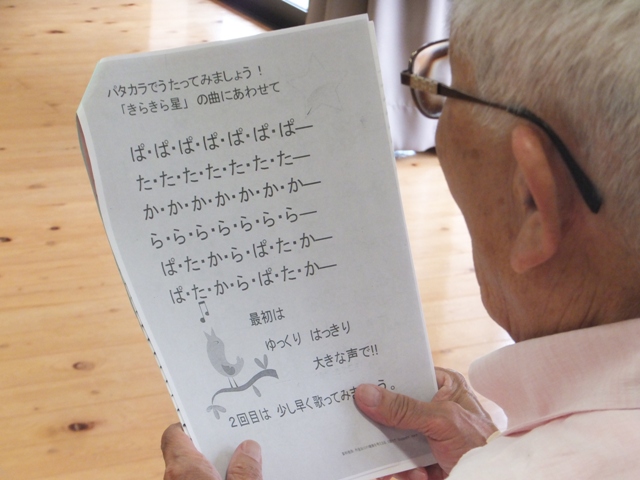 パタカラでうたってみましょう！
「きらきら星」の曲にあわせて
ぱ・ぱ・ぱ・ぱ・ぱ・ぱ・ぱー
た・た・た・た・た・た・たー
か・か・か・か・か・か・かー
ら・ら・ら・ら・ら・ら・らー
ぱ・た・か・ら・ぱ・た・かー
ぱ・た・か・ら・ぱ・た・かー
最初は
ゆっくり はっきり
大きな声で!!
2回目は 少し早く歌ってみましょう。